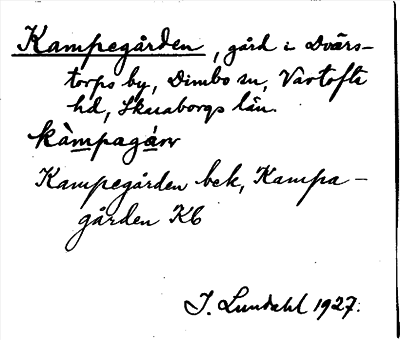 Kampegården, gård i Dvärs-
torps by, Dimbo sn, Vartofta
hd, Skaraborgs län.
kàmpagárn
Kampegården bek, Kampa-
gården Kb
I. Lundahl 1927.